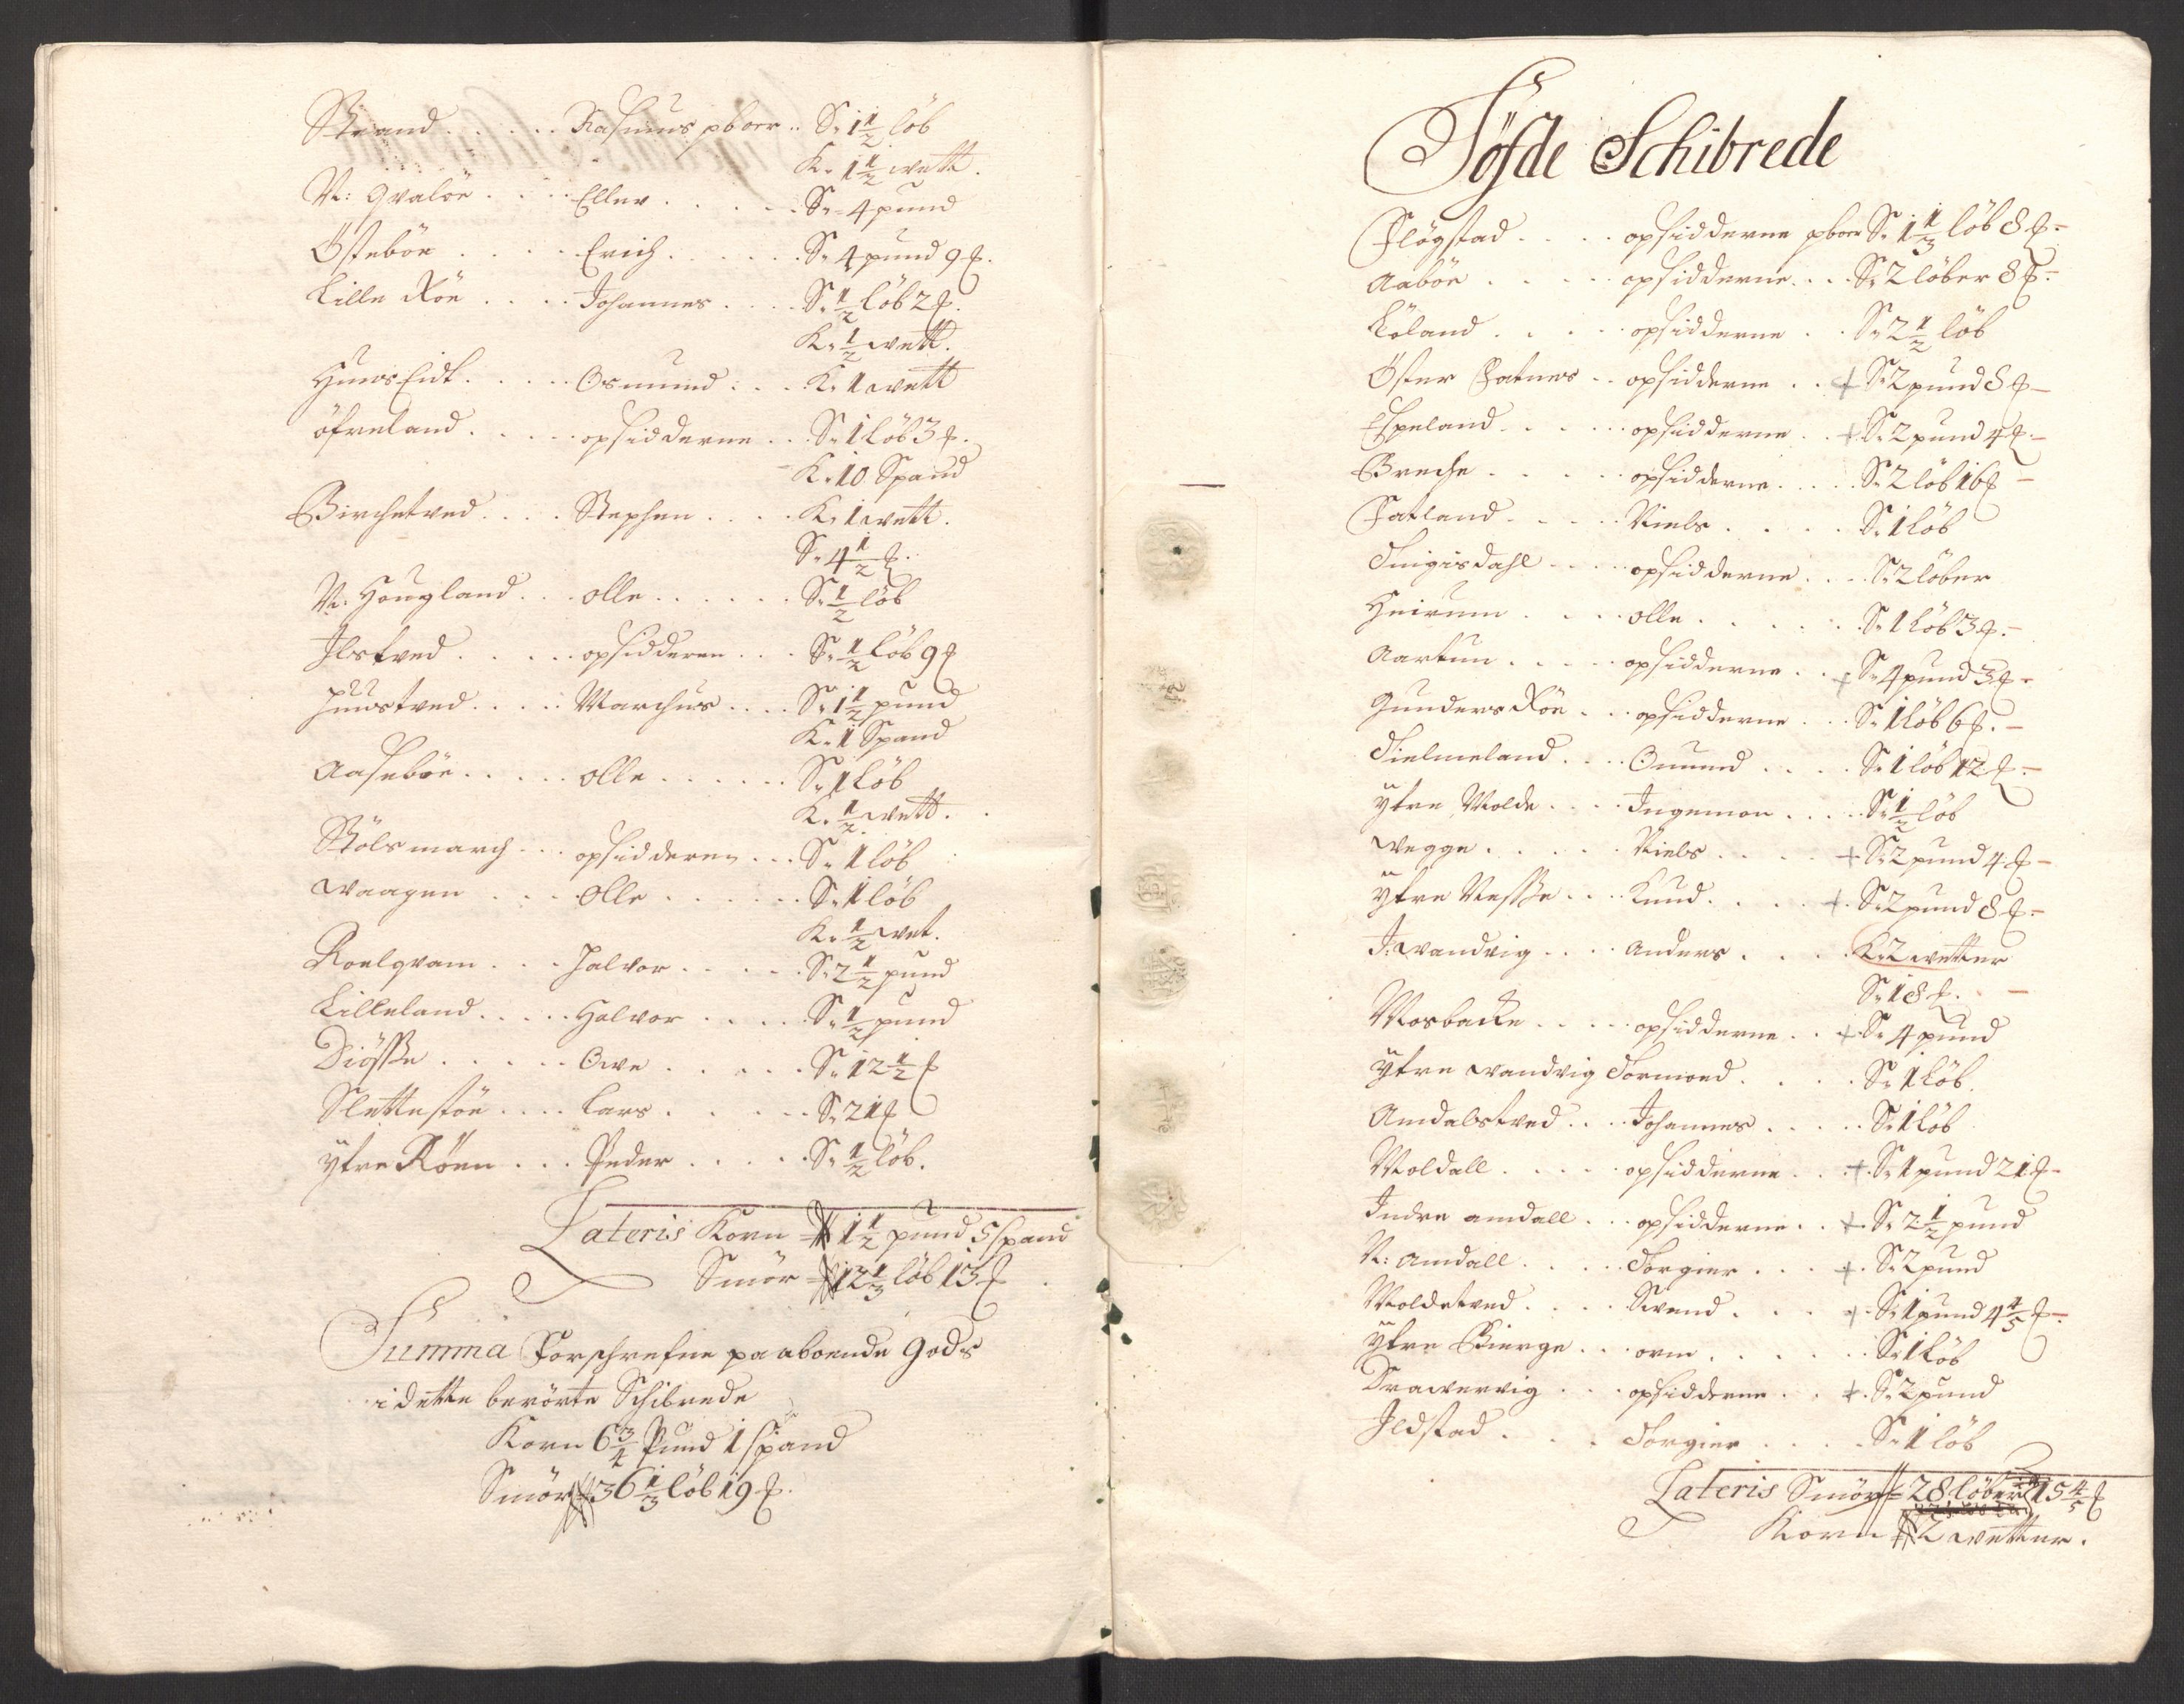 Strand . . . . . Rasmus pboer .. S. 1 1/2 löb
K. 1 1/2 wett.
N: Qvaløe . . . . Ellev . . . . . S. 4 pund
Östebøe . . . . Erich . . . . . . S. 4 pund 9 ℔.
Lille Røe . . . . Johannes . . . . S. 1/2 löb 2 ℔.
K. 1/2 wett.
HuusEidt . . . . Osmund . . . K. 1 wett
öfreland . . . . . opsidderne . . . S. 1 löb 3 ℔.
K. 10 Spand
Birchetved . . . . Stephen . . . . K. 1 wett.
S. 4 1/2 ℔.
N: Hougland . . . olle . . . . . . S. 1/2 löb
Ilstved . . . . . opsidderen . . . S. 1/2 löb 9 ℔
Juustved . . . . . Marchus . . . . S. 1 1/2 pund
K. 1 Spand
Aasebøe . . . . . olle . . . . . . S. 1 löb
K. 1/2 wett.
Stölsmarch . . . opsidderen . . . S. 1 löb
Waagen . . . . Olle . . . . . . S. 1 löb
K. 1/2 wet.
Roelqvam . . . Halvor . . . . . S. 2 1/2 pund
Lilleland . . . . . Halvor . . . . . S. 1/2 pund
Diössle . . . . . Owe . . . . . S. 12 1/2 ℔
Slettestöe . . . . Lars . . . . . S. 21 ℔
ytre Röen . . . Peder . . . . . S. 1/2 löb.
Lateris Korn 1 1/2 pund 5 spand
Smör 12 1/3 löb 13 ℔
Summa Forschrefne paaboende Gods
i dette berörte Schibrede
Korn 6 3/4 Pund 1 spand
Smör 36 1/3 löb 19 ℔.
Söfde Schibrede
Flögstad . . . . opsidderne pboer S. 1 1/3 löb 8 ℔ -
Aabøe . . . . . opsidderne . . . S. 2 löber 8 ℔ -
Löland . . . . . opsidderne . . S. 2 1/2 löb
Öster Fatnes . . opsidderne . . + S. 2 pund 8 ℔ -
Espeland . . . . . opsidderne . . + S. 2 pund 4 ℔ -
Breche . . . . . opsidderne . . . . S. 2 löb 16 ℔ -
Fatland . . . . . Niels . . . . . S. 1 löb
Tengisdahl . . . . opsidderne . . . S. 2 löber
Heirum . . . . olle . . . . . . S. 1 löb 3 ℔ -
Aartun . . . . . opsidderne . . + S. 4 pund 3 ℔ -
Gunders Røe . . . opsidderne . . . S. 1 löb 6 ℔ . -
Tielmeland . . . . Omund . . . . S. 1 löb 12 ℔ -
ytre Molde . . . . Ingemon . . . . S. 1/2 löb
Wegge . . . . . Niels . . . . + S. 2 pund 4 ℔ -
ytre Nesse . . . . Knud . . . . + S. 2 pund 8 ℔ -
J: Wandvig . . . . Anders . . . . K. 2 wetter
S. 18 ℔ . -
Mosbacke . . . . . opsidderne . . + S. 4 pund
ytre Wandvig Tormoed . . . . . S. 1 löb
Amdalstved . . . . Johannes . . . . . S. 1 löb
Moldall . . . . . opsidderne . . + S. 1 pund 21 ℔ -
Indre amdall . . . opsidderne . . + S. 2 1/2 pund
N: Amdall . . . . . Torgier . . . + S. 2 pund
Moldetved . . . . Svend . . . + S. 1 pund 4 4/5 ℔ -
ytre Bierge . . . orm . . . . . . S. 1 löb
Drarvervig . . . opsidderne . . + S. 2 pund
Ildstad . . . . Torgier . . . . S. 1 löb
Lateris Smör 28 löber 15 4/5 ℔
Korn 2 wetter.